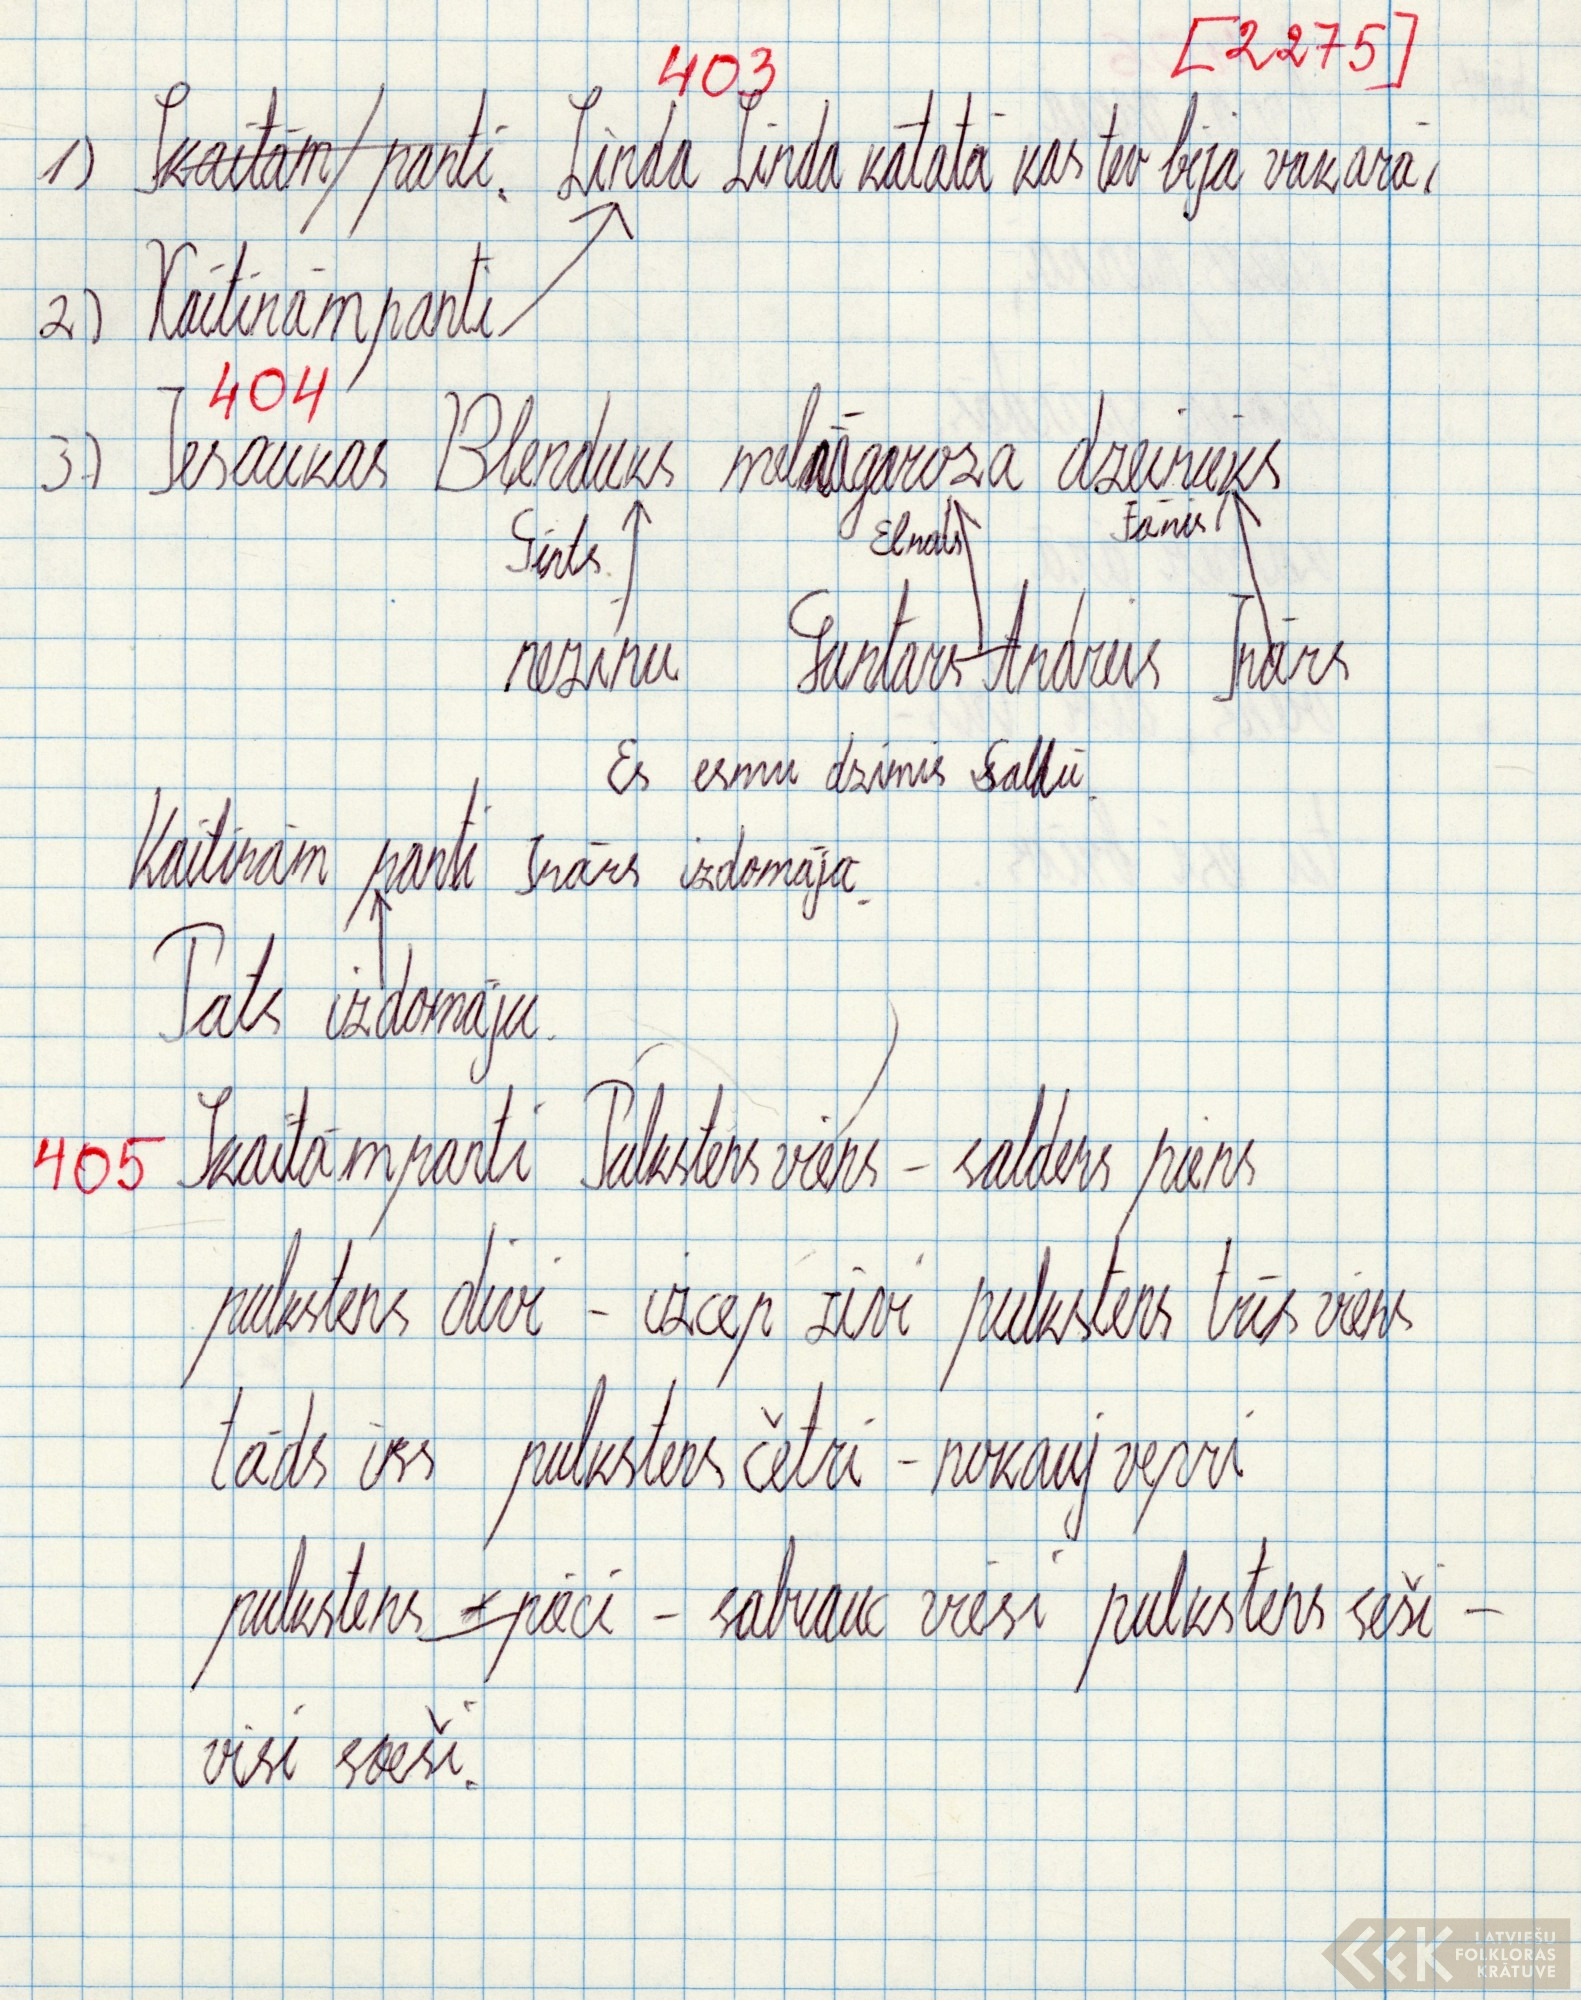 403 [2275]
1) Skaitām/panti. Linda Linda kātatā kas tev bija vakarā,
2) Kaitinām panti
404
3.) Iesaukas Blenduks melnāgaroza dzeinieks
Gints. Elnads Jānis
nezinu Guntars Andreis Inārs
Es esmu dzimis Saldū.
Kaitinām panti Inārs izdomāja.
Pats izdomāju.
405 Skaitām panti Pulkstens viens – salders piens
pulkstens divi – izcep zivi pulkstens trīs viens
tāds irss pulkstens četri – nokauj vepri
pulkstens pieci – sabrauc viesi pulkstens seši –
visi sveši.
LATVIEŠU
FOLKLORAS
KRĀTUVE